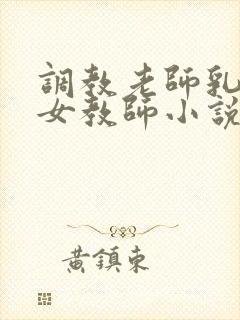 調教老師乳
女教師小說
黃鎮東